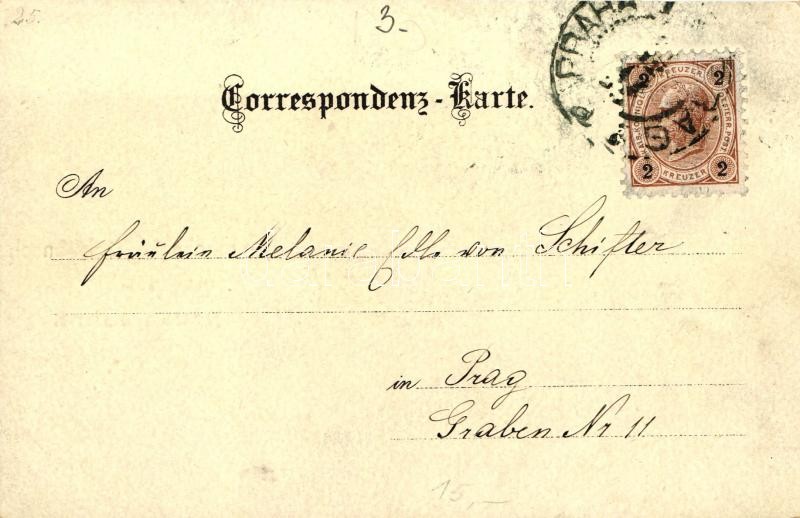 25.
3.
PRAHA
Correspondenz-Karte.
2 KREUZER 2
2 KREUZER 2
An
Fräulein Melanie Edle von Schifter
in Prag
Graben Nr 11
15,-